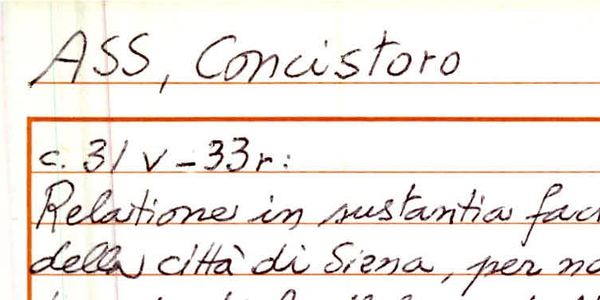 ASS, Concistoro
c. 31 v - 33r:
Relatione in sustantia fac
della città di Siena, per no